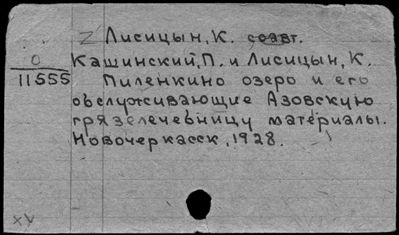 Лисицын, К. соавт.
О
11555
Кашинский, П. и Лисицын, К.
Пиленкино озеро и его
обслуживающие Азовскую
грязелечебницу материалы.
Новочеркасск, 1928.
XV